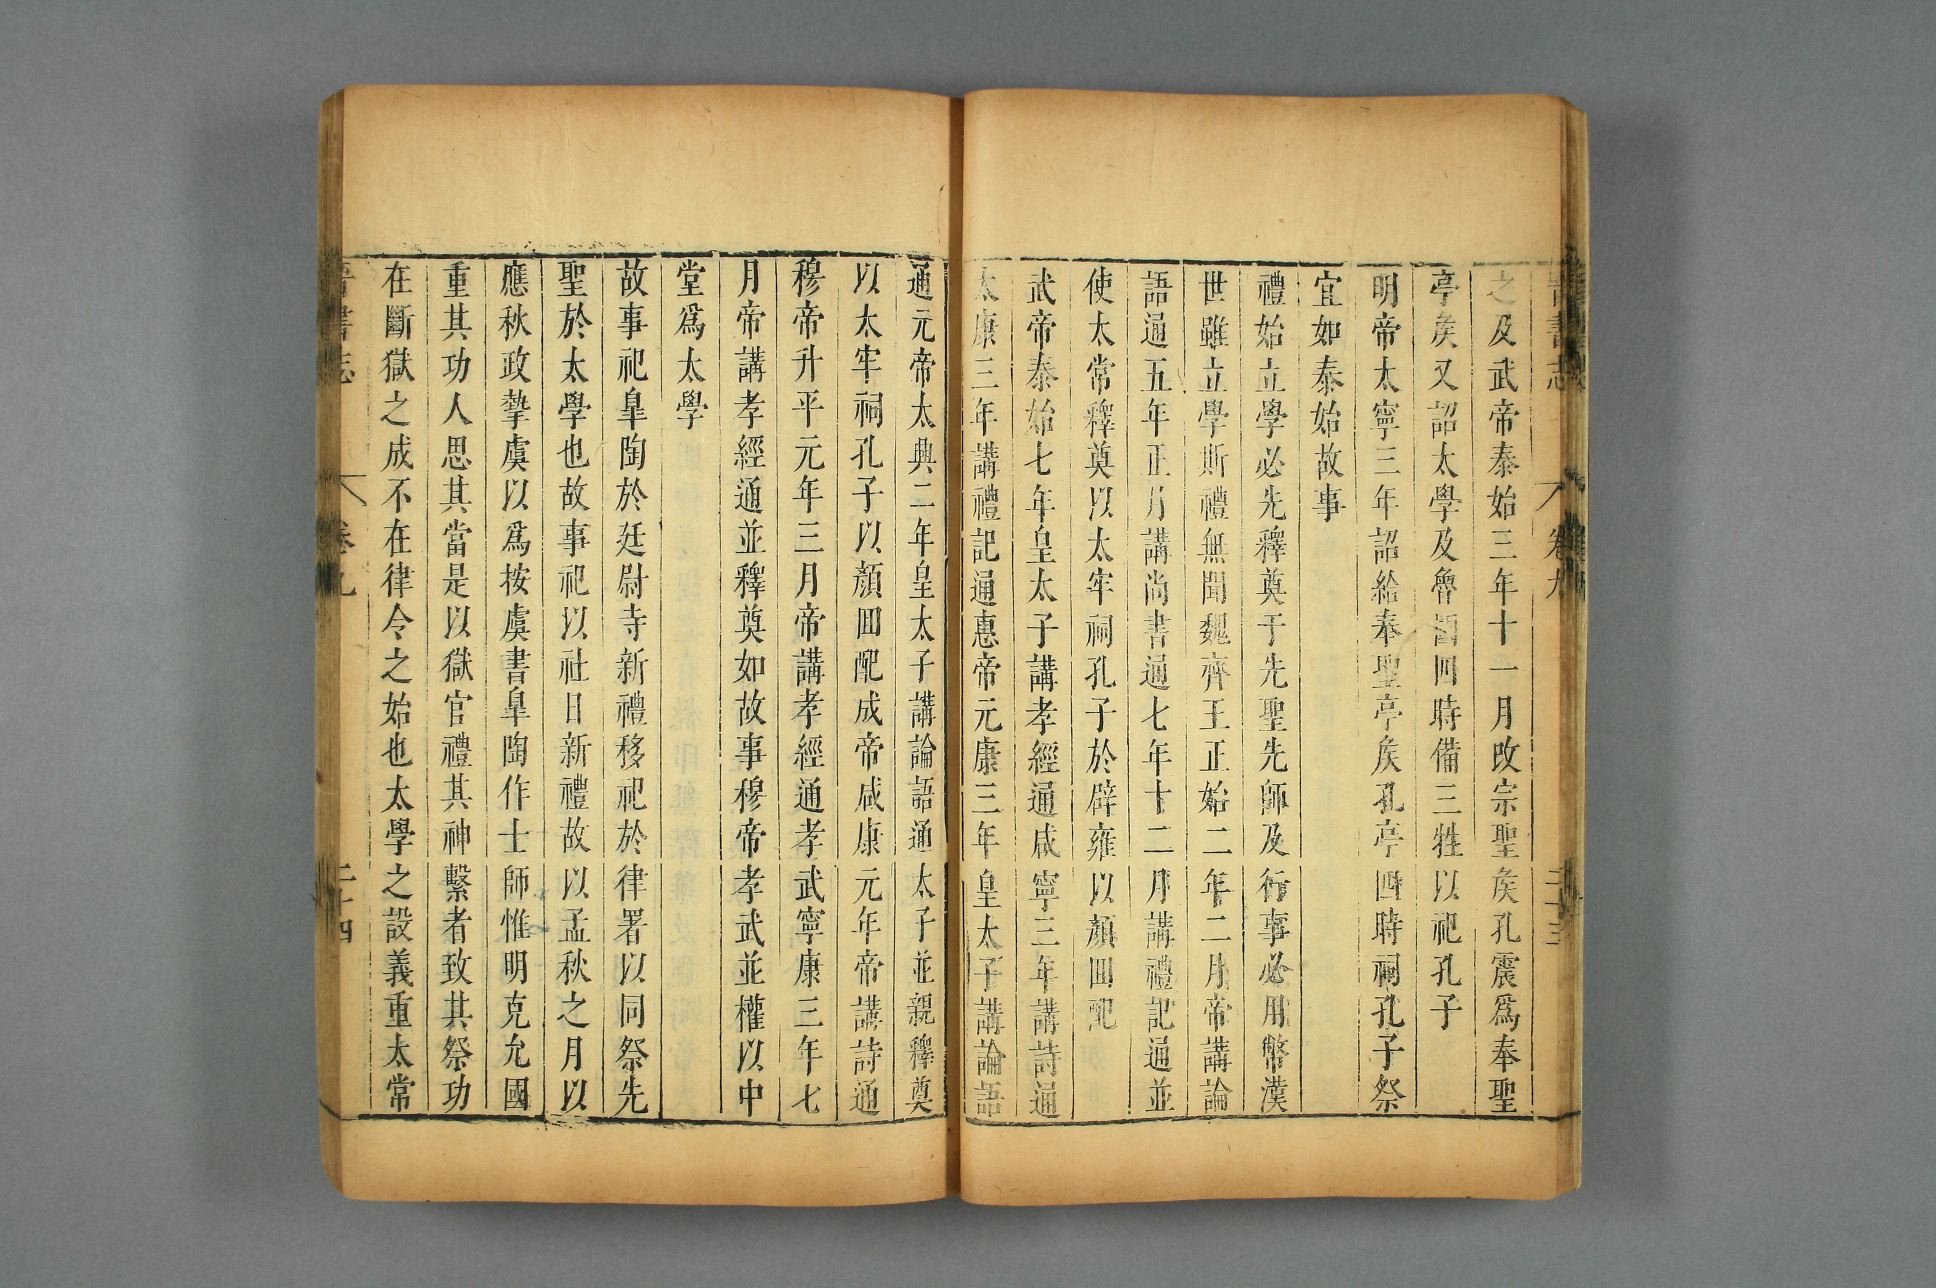 晉書志 卷九 二十三
之及武帝泰始三年十一月改宗聖矦孔震爲奉聖
亭矦又詔太學及魯國四時備三牲以祀孔子
明帝太寧三年詔給奉聖亭矦孔亭四時祠孔子祭
宜如泰始故事
禮始立學必先釋奠于先聖先師及行事必用幣漢
世雖立學斯禮無聞魏齊王正始二年二月帝講論
語通五年正月講尚書通七年十二月講禮記通並
使太常釋奠以太牢祠孔子於辟雍以顏回配
武帝泰始七年皇太子講孝經通咸寧三年講詩通
太康三年講禮記通惠帝元康三年皇太子講論語
通元帝太興二年皇太子講論語通太子並親釋奠
以太牢祠孔子以顏回配成帝咸康元年帝講詩通
穆帝升平元年三月帝講孝經通孝武寧康三年七
月帝講孝經通並釋奠如故事穆帝孝武並權以中
堂爲太學
故事祀臯陶於廷尉寺新禮移祀於律署以同祭先
聖於太學也故事祀以社日新禮故以孟秋之月以
應秋政摯虞以爲按虞書臯陶作士師惟明克允國
重其功人思其當是以獄官禮其神繫者致其祭功
在斷獄之成不在律令之始也太學之設義重太常
晉書志 卷九 二十四